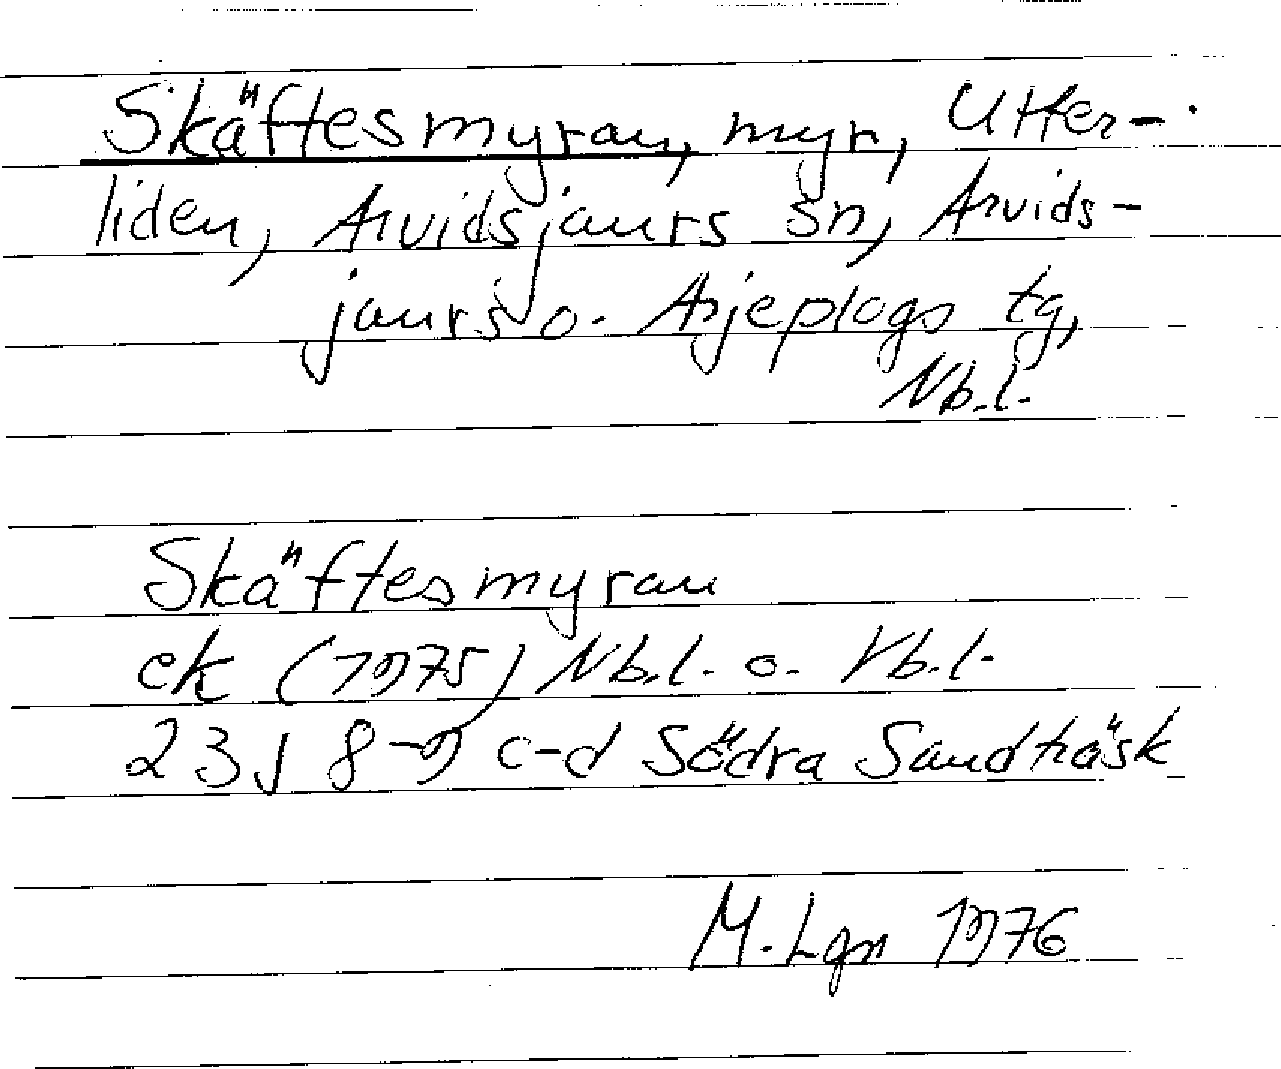 Skäftesmyran, myr, Utter-
liden, Arvidsjaurs sn, Arvids-
jaurs o. Arjeplogs tg,
Nb.l.
Skäftesmyran
ek (1975) Nb.l. o. Vb.l.
23J 8-9 c-d Södra Sandträsk
M.Lgn 1976